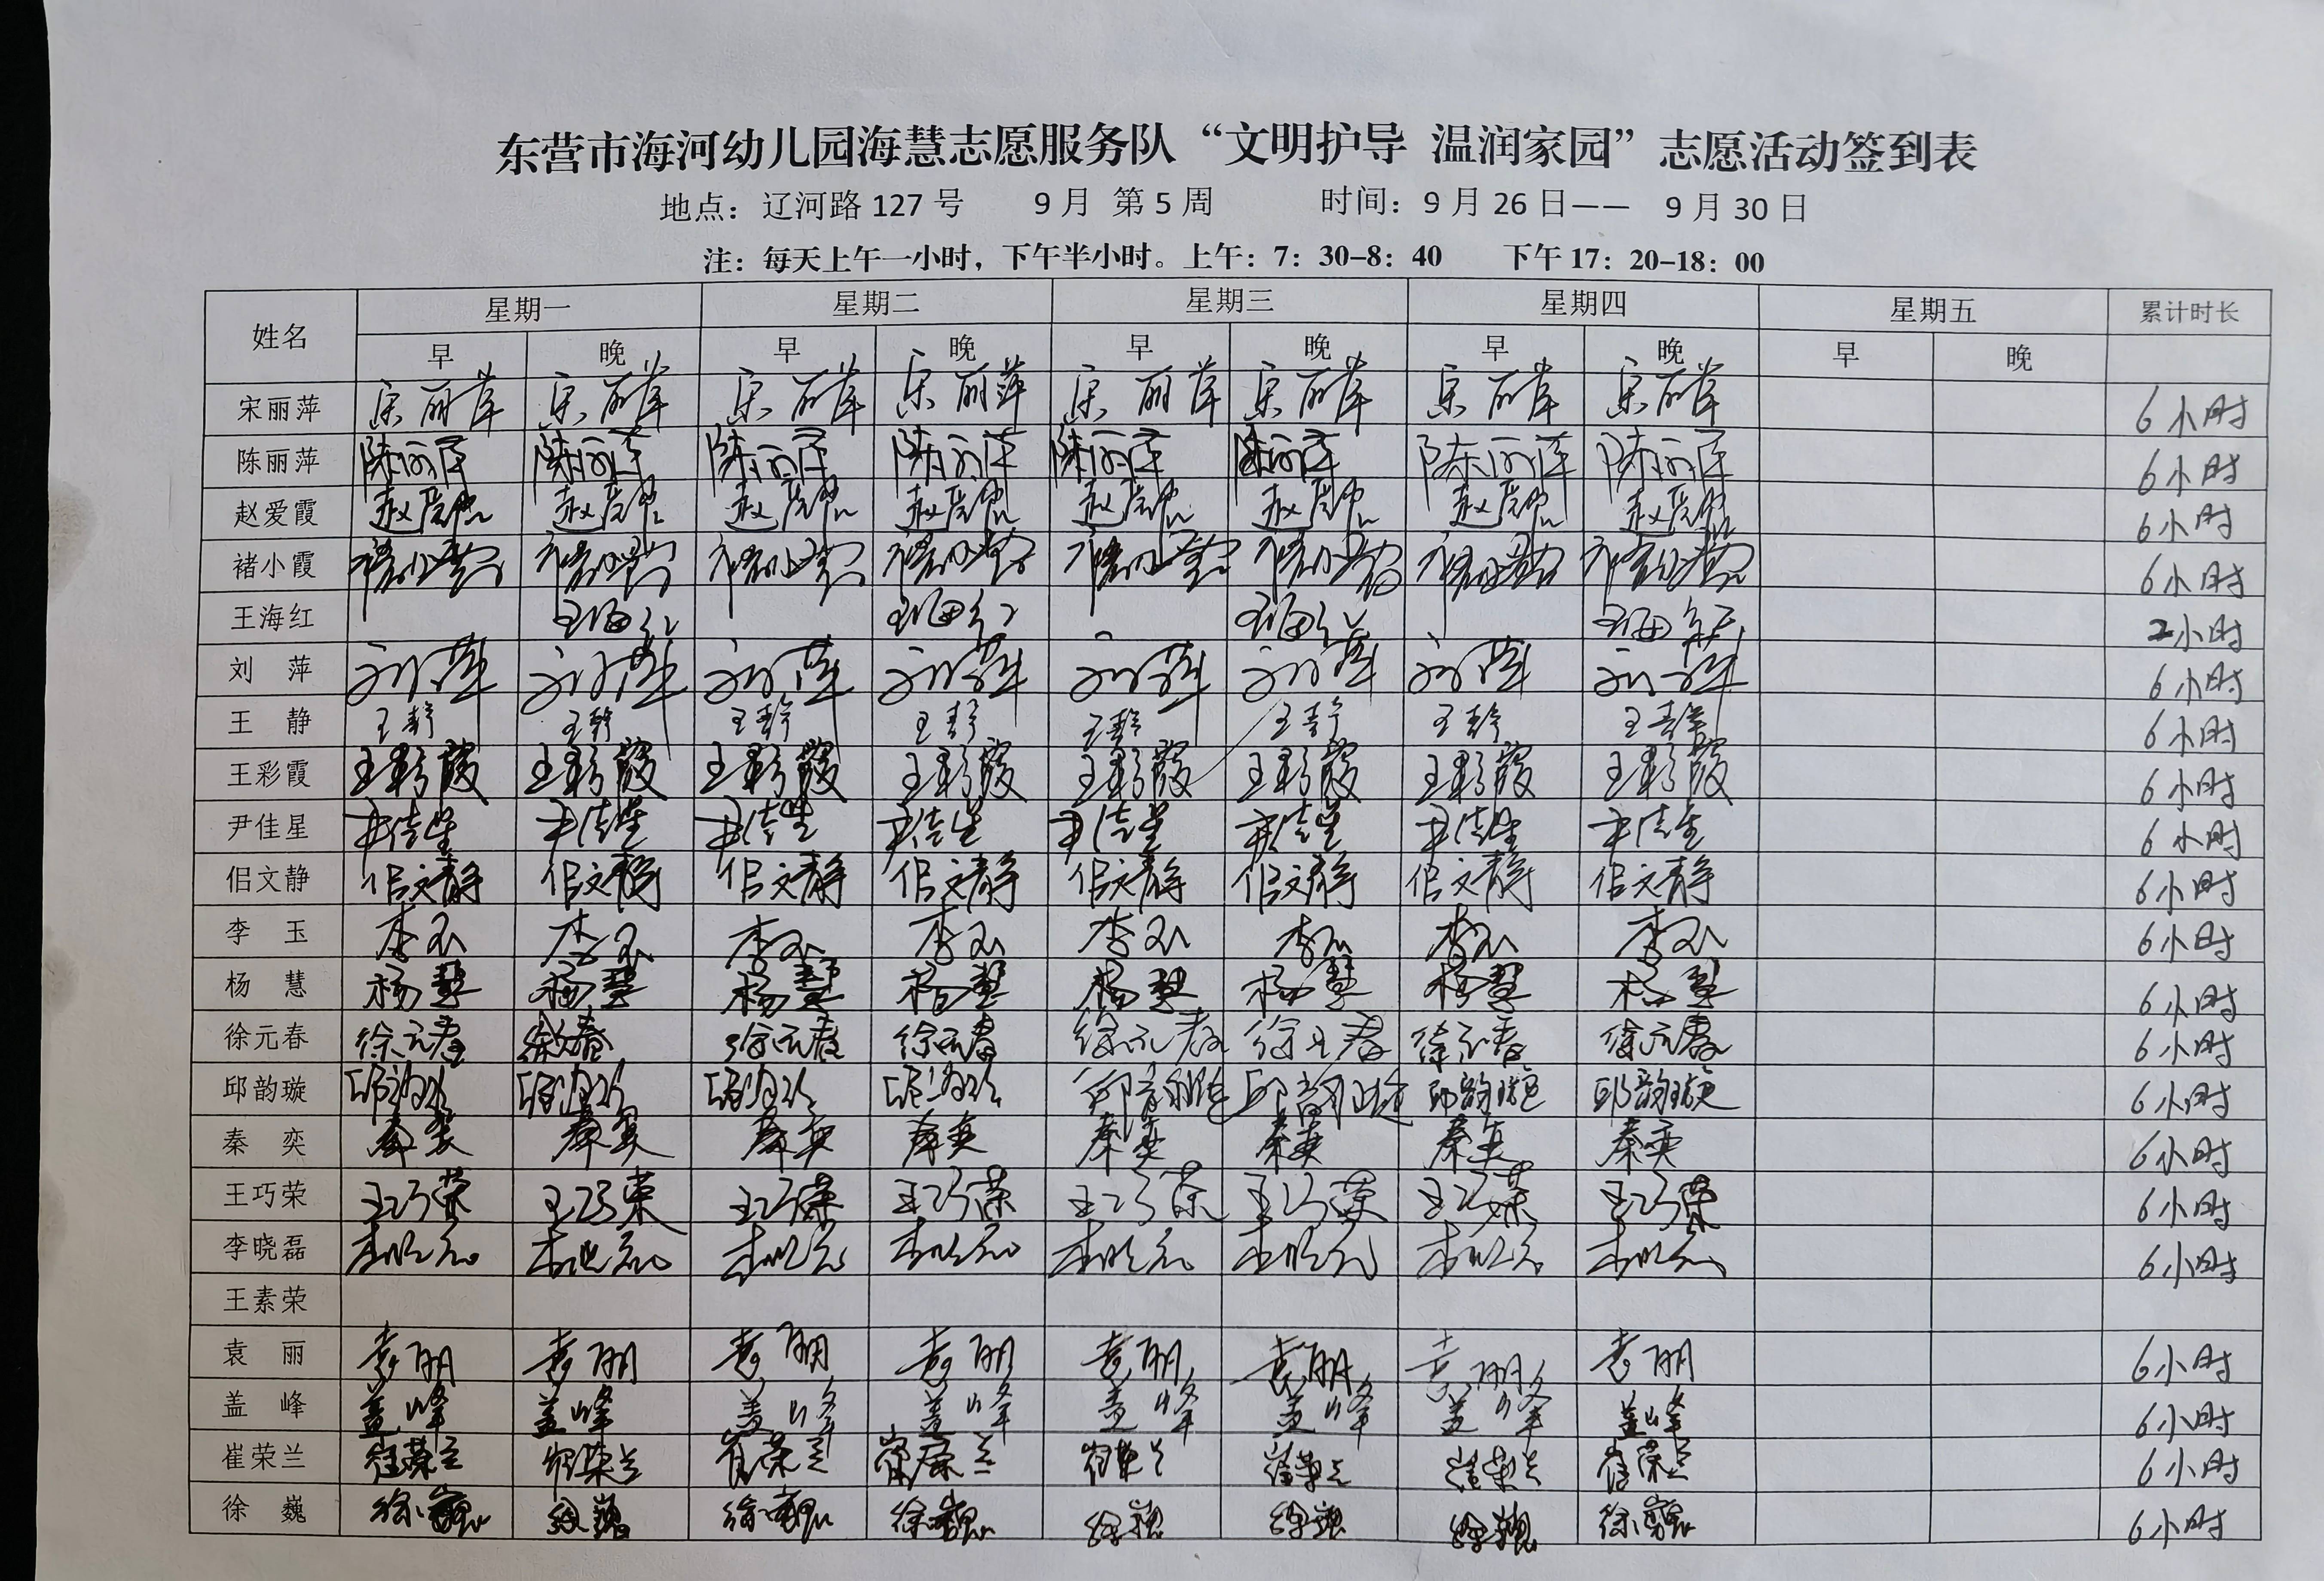 东营市海河幼儿园海慧志愿服务队“文明护导 温润家园”志愿活动签到表
地点：辽河路 127 号 9 月 第 5 周 时间：9 月 26 日—— 9 月 30 日
注：每天上午一小时，下午半小时。上午：7：30-8：40 下午 17：20-18：00
姓名 星期一 星期二 星期三 星期四 星期五 累计时长
早 晚 早 晚 早 晚 早 晚 早 晚
宋丽萍 宋丽萍 宋丽萍 宋丽萍 宋丽萍 宋丽萍 宋丽萍 宋丽萍 宋丽萍 6小时
陈丽萍 陈丽萍 陈丽萍 陈丽萍 陈丽萍 陈丽萍 陈丽萍 陈丽萍 陈丽萍 6小时
赵爱霞 赵爱霞 赵爱霞 赵爱霞 赵爱霞 赵爱霞 赵爱霞 赵爱霞 赵爱霞 6小时
褚小霞 褚小霞 褚小霞 褚小霞 褚小霞 褚小霞 褚小霞 褚小霞 褚小霞 6小时
王海红 王海红 王海红 王海红 王海红 2小时
刘 萍 刘萍 刘萍 刘萍 刘萍 刘萍 刘萍 刘萍 刘萍 6小时
王 静 王静 王静 王静 王静 王静 王静 王静 王静 6小时
王彩霞 王彩霞 王彩霞 王彩霞 王彩霞 王彩霞 王彩霞 王彩霞 王彩霞 6小时
尹佳星 尹佳星 尹佳星 尹佳星 尹佳星 尹佳星 尹佳星 尹佳星 尹佳星 6小时
佀文静 佀文静 佀文静 佀文静 佀文静 佀文静 佀文静 佀文静 佀文静 6小时
李 玉 李玉 李玉 李玉 李玉 李玉 李玉 李玉 李玉 6小时
杨 慧 杨慧 杨慧 杨慧 杨慧 杨慧 杨慧 杨慧 杨慧 6小时
徐元春 徐元春 徐元春 徐元春 徐元春 徐元春 徐元春 徐元春 徐元春 6小时
邱韵璇 邱韵璇 邱韵璇 邱韵璇 邱韵璇 邱韵璇 邱韵璇 邱韵璇 邱韵璇 6小时
秦 奕 秦奕 秦奕 秦奕 秦奕 秦奕 秦奕 秦奕 秦奕 6小时
王巧荣 王巧荣 王巧荣 王巧荣 王巧荣 王巧荣 王巧荣 王巧荣 王巧荣 6小时
李晓磊 李晓磊 李晓磊 李晓磊 李晓磊 李晓磊 李晓磊 李晓磊 李晓磊 6小时
王素荣
袁 丽 袁丽 袁丽 袁丽 袁丽 袁丽 袁丽 袁丽 袁丽 6小时
盖 峰 盖峰 盖峰 盖峰 盖峰 盖峰 盖峰 盖峰 盖峰 6小时
崔荣兰 崔荣兰 崔荣兰 崔荣兰 崔荣兰 崔荣兰 崔荣兰 崔荣兰 崔荣兰 6小时
徐 巍 徐巍 徐巍 徐巍 徐巍 徐巍 徐巍 徐巍 徐巍 6小时